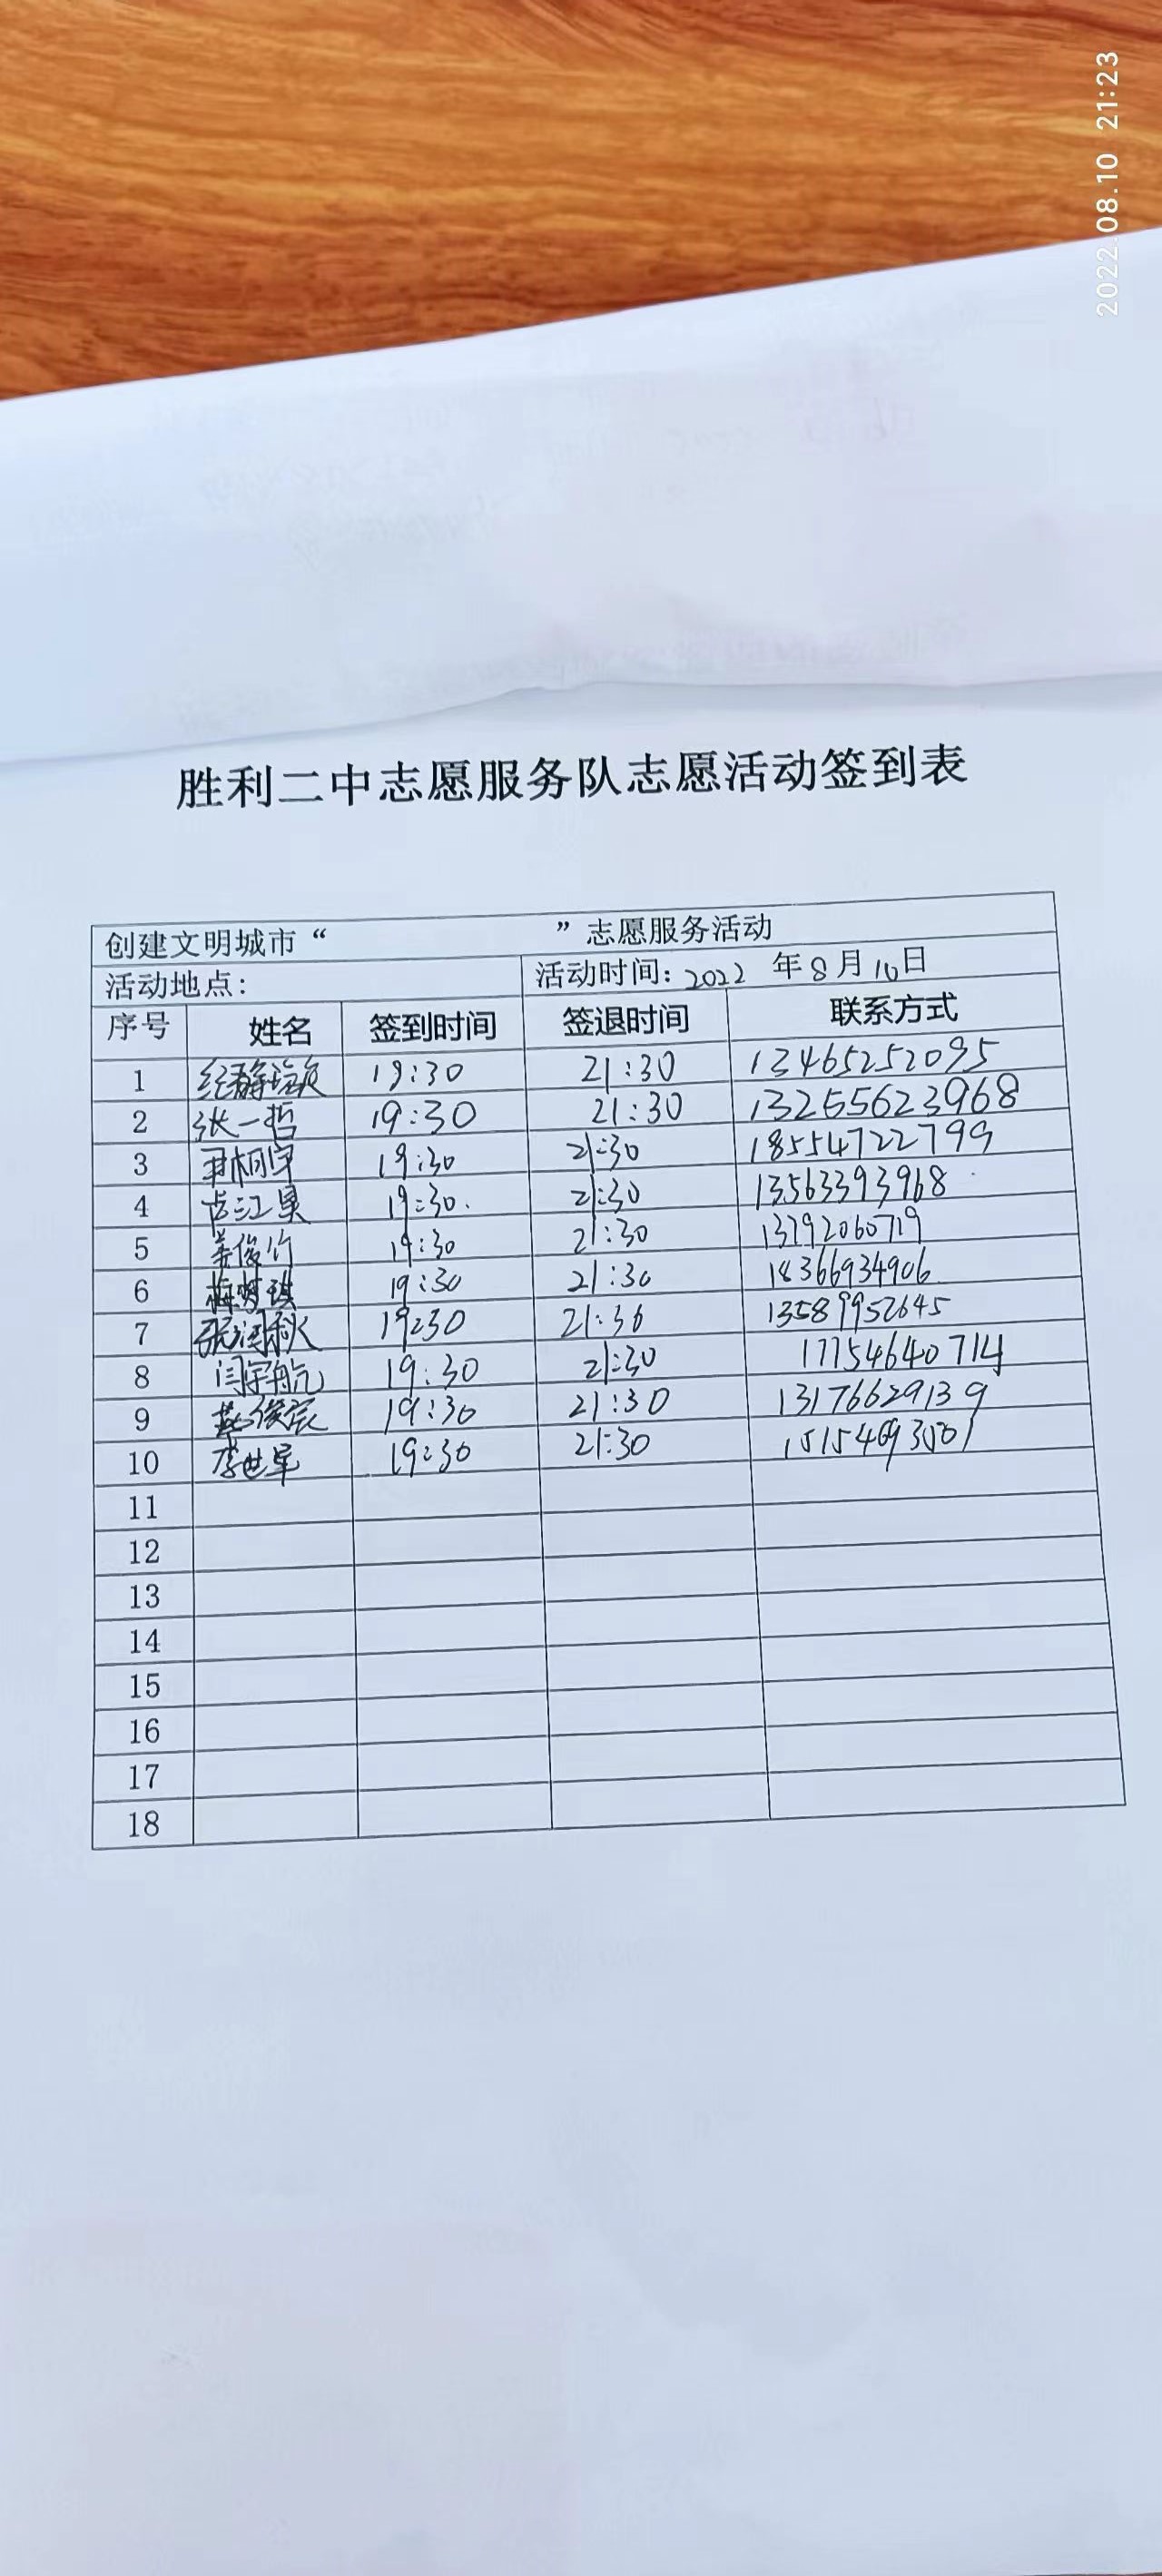 2022.08.10 21:23
胜利二中志愿服务队志愿活动签到表
创建文明城市“ ”志愿服务活动
活动地点: 活动时间: 2022 年 8 月 10 日
序号 姓名 签到时间 签退时间 联系方式
1 19:30 21:30 13465252095
2 张一哲 19:30 21:30 13255623968
3 尹桐宇 19:30 21:30 18554722799
4 19:30. 21:30 13563393968
5 姜俊竹 19:30 21:30 13792060719
6 梅梦琪 19:30 21:30 18366934906
7 19:30 21:30 13589952645
8 闫宇航 19:30 21:30 17754640714
9 19:30 21:30 13176629139
10 李世军 19:30 21:30
11
12
13
14
15
16
17
18